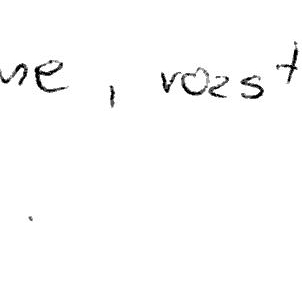 ne, rozst